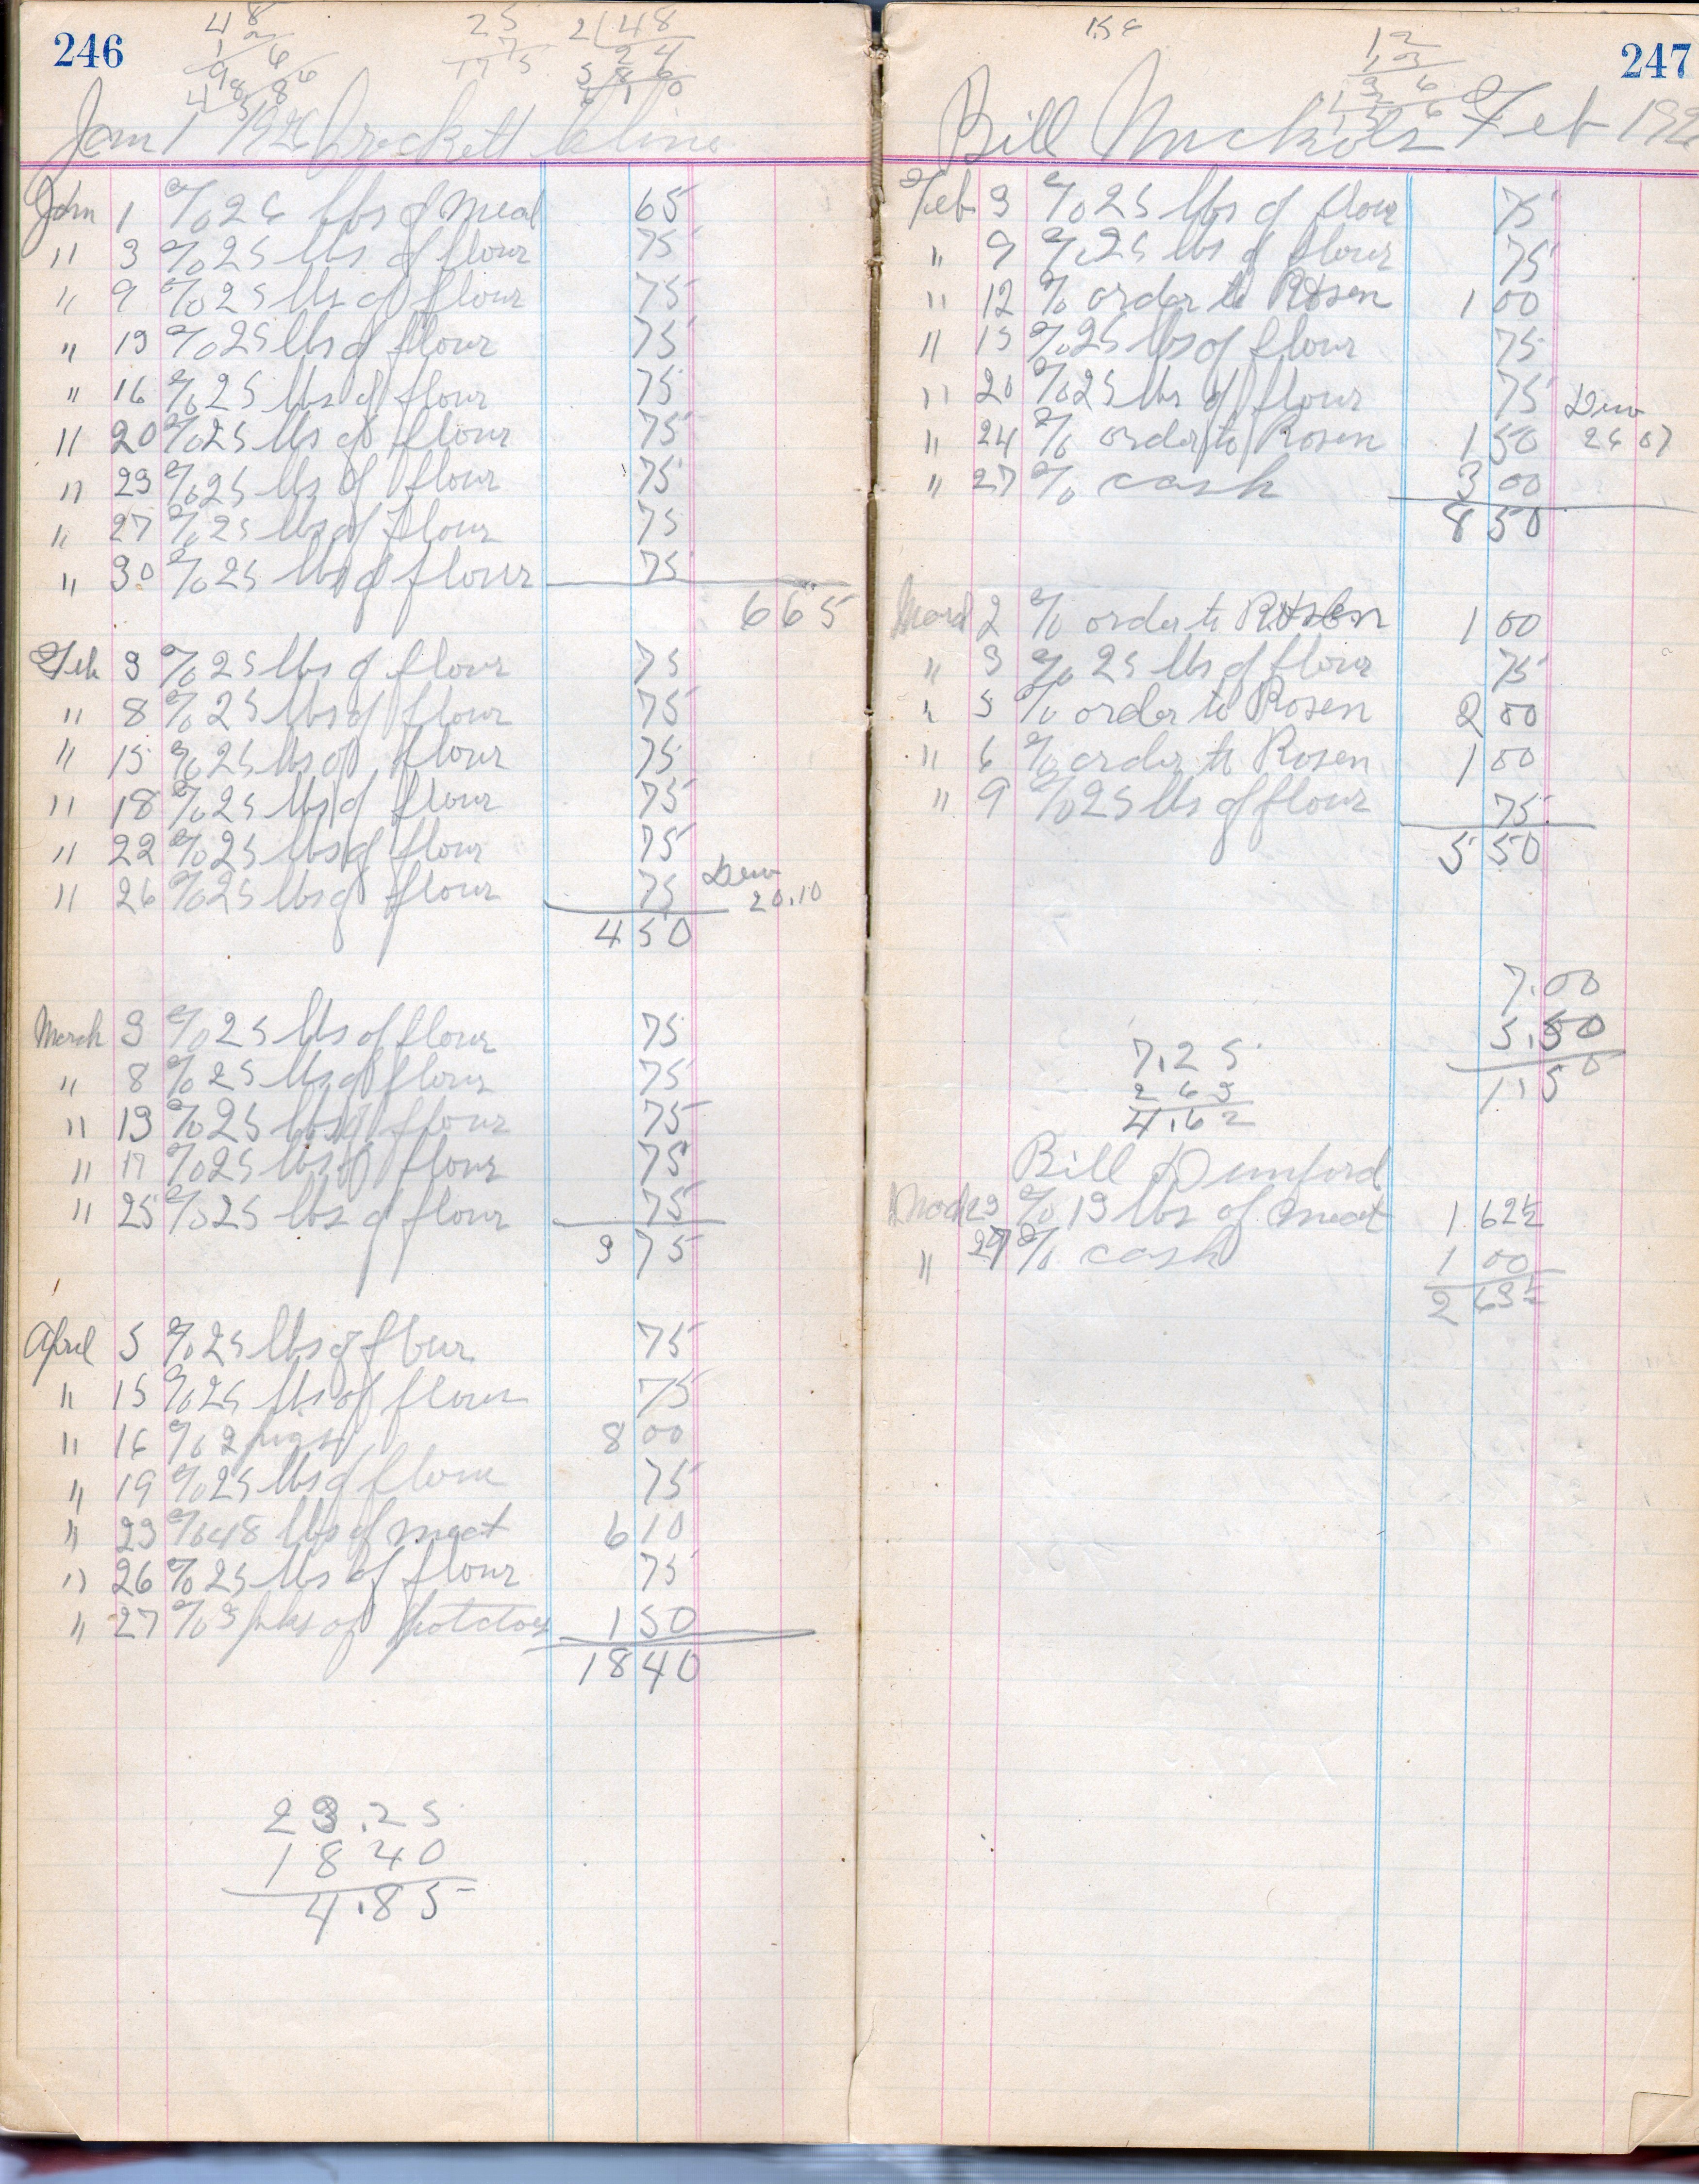 246
48
2
6
25
7
175
2 48
24
586
610
Jan 1 1926 Crockett Cline
Jan 1 % 26 lbs of Meal 65
" 3 % 25 lbs of flour 75
" 9 % 25 lbs of flour 75
" 13 % 25 lbs of flour 75
" 16 % 25 lbs of flour 75
" 20 % 25 lbs of flour 75
" 23 % 25 lbs of flour 75
" 27 % 25 lbs of flour 75
" 30 % 25 lbs of flour 75
665
Feb 3 % 25 lbs of flour 75
" 8 % 25 lbs of flour 75
" 15 % 25 lbs of flour 75
" 18 % 25 lbs of flour 75
" 22 % 25 lbs of flour 75
" 26 % 25 lbs of flour 75 Dew
20.10
4 50
March 3 % 25 lbs of flour 75
" 8 % 25 lbs of flour 75
" 13 % 25 lbs of flour 75
" 17 % 25 lbs of flour 75
" 25 % 25 lbs of flour 75
3 75
April 5 % 25 lbs of flour 75
" 15 % 25 lbs of flour 75
" 16 % 2 pigs 8 00
" 19 % 25 lbs of flour 75
" 23 % 48 lbs of meat 6 10
" 26 % 25 lbs of flour 75
" 27 % 3 pks of potatoes 1 50
18 40
23.25
18 40
4.85
247
12
Bill Nickols Feb 192
Feb 3 % 25 lbs of flour 75
" 9 % 25 lbs of flour 75
" 12 % order to Rosen 1 00
" 15 % 25 lbs of flour 75
" 20 % 25 lbs of flour 75 Dew
" 24 % order to Rosen 1 50 26 07
" 27 % cash 3 00
8 50
March 2 % order to Rosen 1 00
" 3 % 25 lbs of flour 75
" 5 % order to Rosen 2 00
" 6 % order to Rosen 1 00
" 9 % 25 lbs of flour 75
5 50
7.00
5.50
1.50
7.25
2 63
4.62
Bill Dunford
March 23 % 13 lbs of meat 1 62½
" 27 % cash 1 00
2 63½